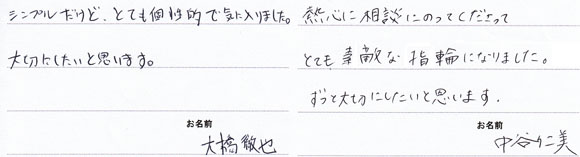 シンプルだけど、とても個性的で気に入りました。
大切にしたいと思います。
お名前
大橋敏也
熱心に相談にのってくださって
とても素敵な指輪になりました。
ずっと大切にしたいと思います。
お名前
中谷仁美